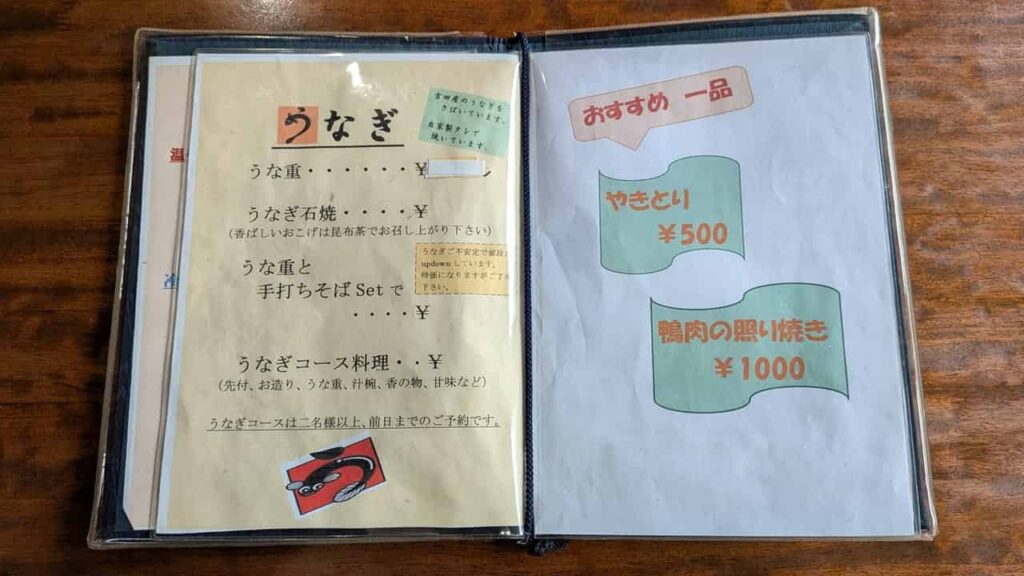 うなぎ
吉田産のうなぎを
さばいています。
自家製タレで
焼いています。
うな重・・・・・・¥
うなぎ石焼・・・・¥
(香ばしいおこげは昆布茶でお召し上がり下さい)
うなぎご不安定で値段が
updown しています。
時価になりますがご了
下さい。
うな重と
手打ちそば Set で
・・・・¥
うなぎコース料理・・¥
(先付、お造り、うな重、汁椀、香の物、甘味など)
うなぎコースは二名様以上、前日までのご予約です。
温
冷
おすすめ 一品
やきとり
¥500
鴨肉の照り焼き
¥1000